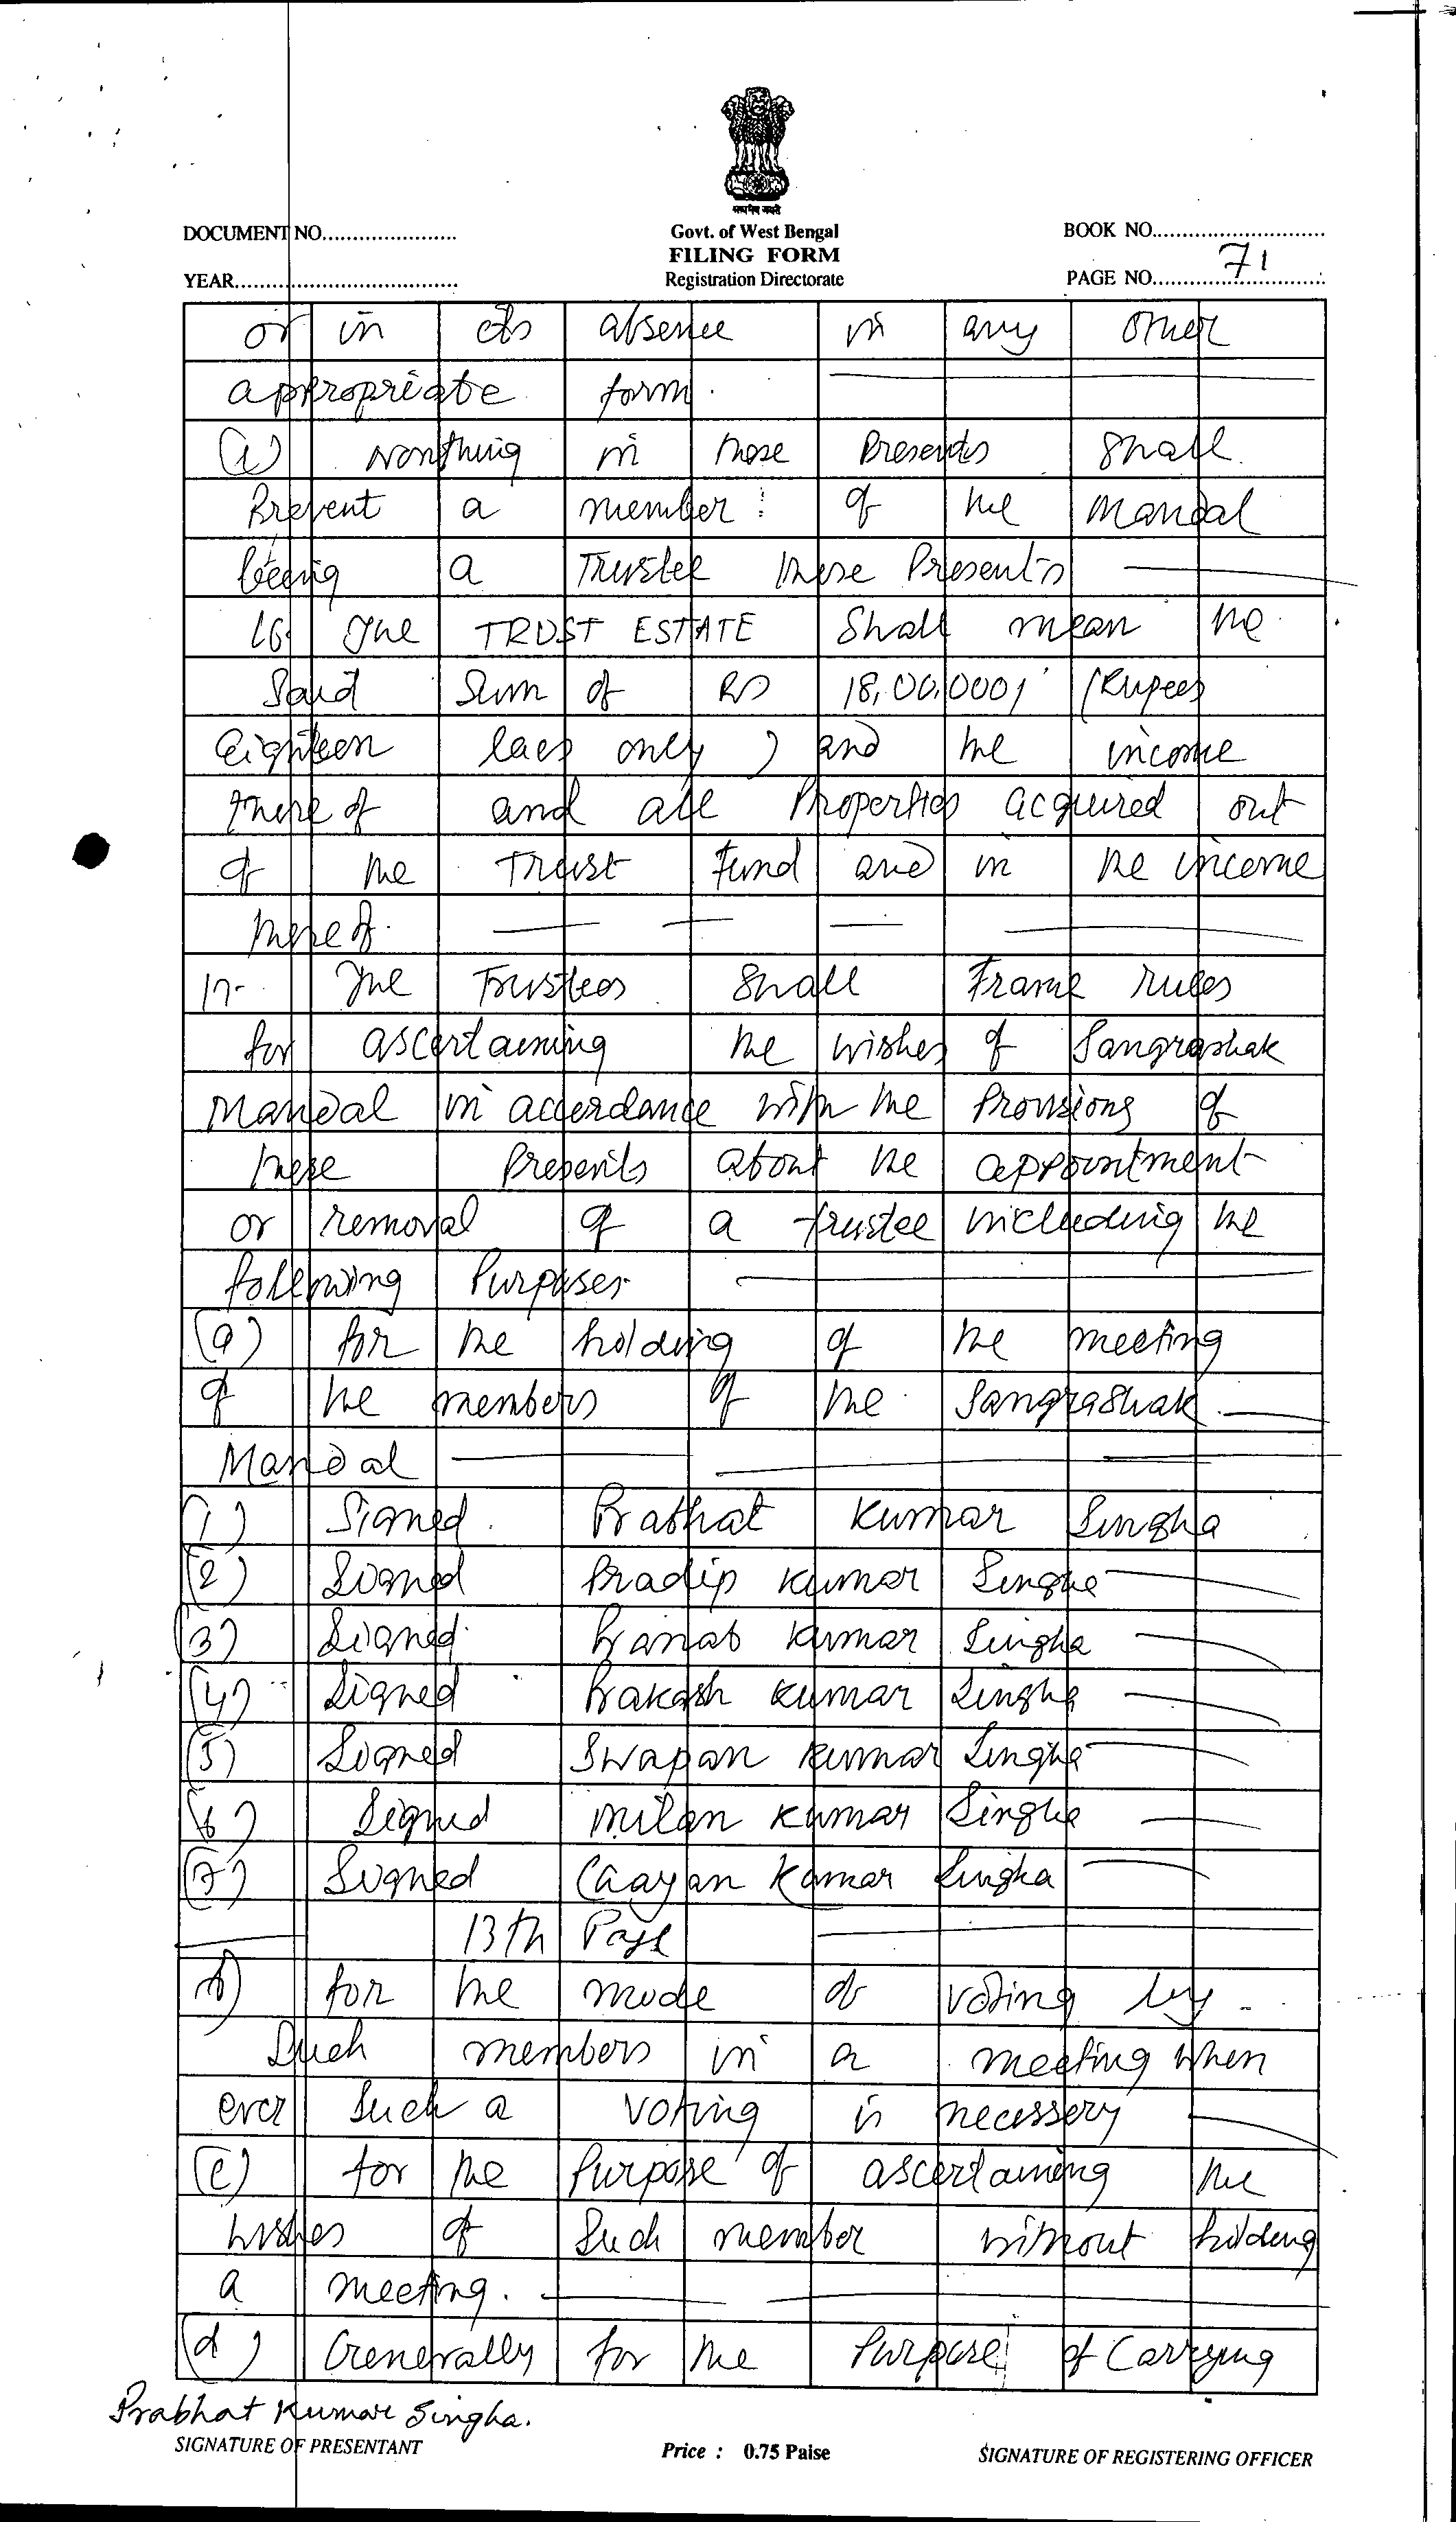 सत्यमेव जयते
DOCUMENT NO......................
Govt. of West Bengal
BOOK NO.............................
FILING FORM
YEAR.......................................
Registration Directorate
PAGE NO. 71
or in its absence in any other
appropriate form.
(i) Nonthing in those Presents shall
Prevent a member of the Mandal
being a Trustee these Presents
16. The TRUST ESTATE Shall mean the
Said Sum of Rs 18,00,000/ (Rupees
Eighteen lacs only) and the income
there of and all Properties acquired out
of the Trust Fund and in the income
there of.
17- The Trustees Shall Frame rules
for ascertaining the wishes of Sangrashak
Mandal in accordance with the Provisions of
these Presents about the appointment
or removal of a trustee including the
following Purposes.
(a) for the holding of the meeting
of the members of the Sangrashak
Mandal
(1) Signed Prabhat Kumar Singha
(2) Signed Pradip Kumar Singha
(3) Signed Pranab Kumar Singha
(4) Signed Prakash Kumar Singha
(5) Signed Swapan Kumar Singha
(6) Signed Milan Kumar Singha
(7) Signed Kumar Singha
13th Page
b) for the mode of voting by
Such members in a meeting when
ever Such a voting is necessery
(c) for the Purpose of ascertaining the
wishes of Such member without holding
a meeting.
(d) Generally for the Purpose of Carrying
Prabhat Kumar Singha.
SIGNATURE OF PRESENTANT
Price : 0.75 Paise
SIGNATURE OF REGISTERING OFFICER